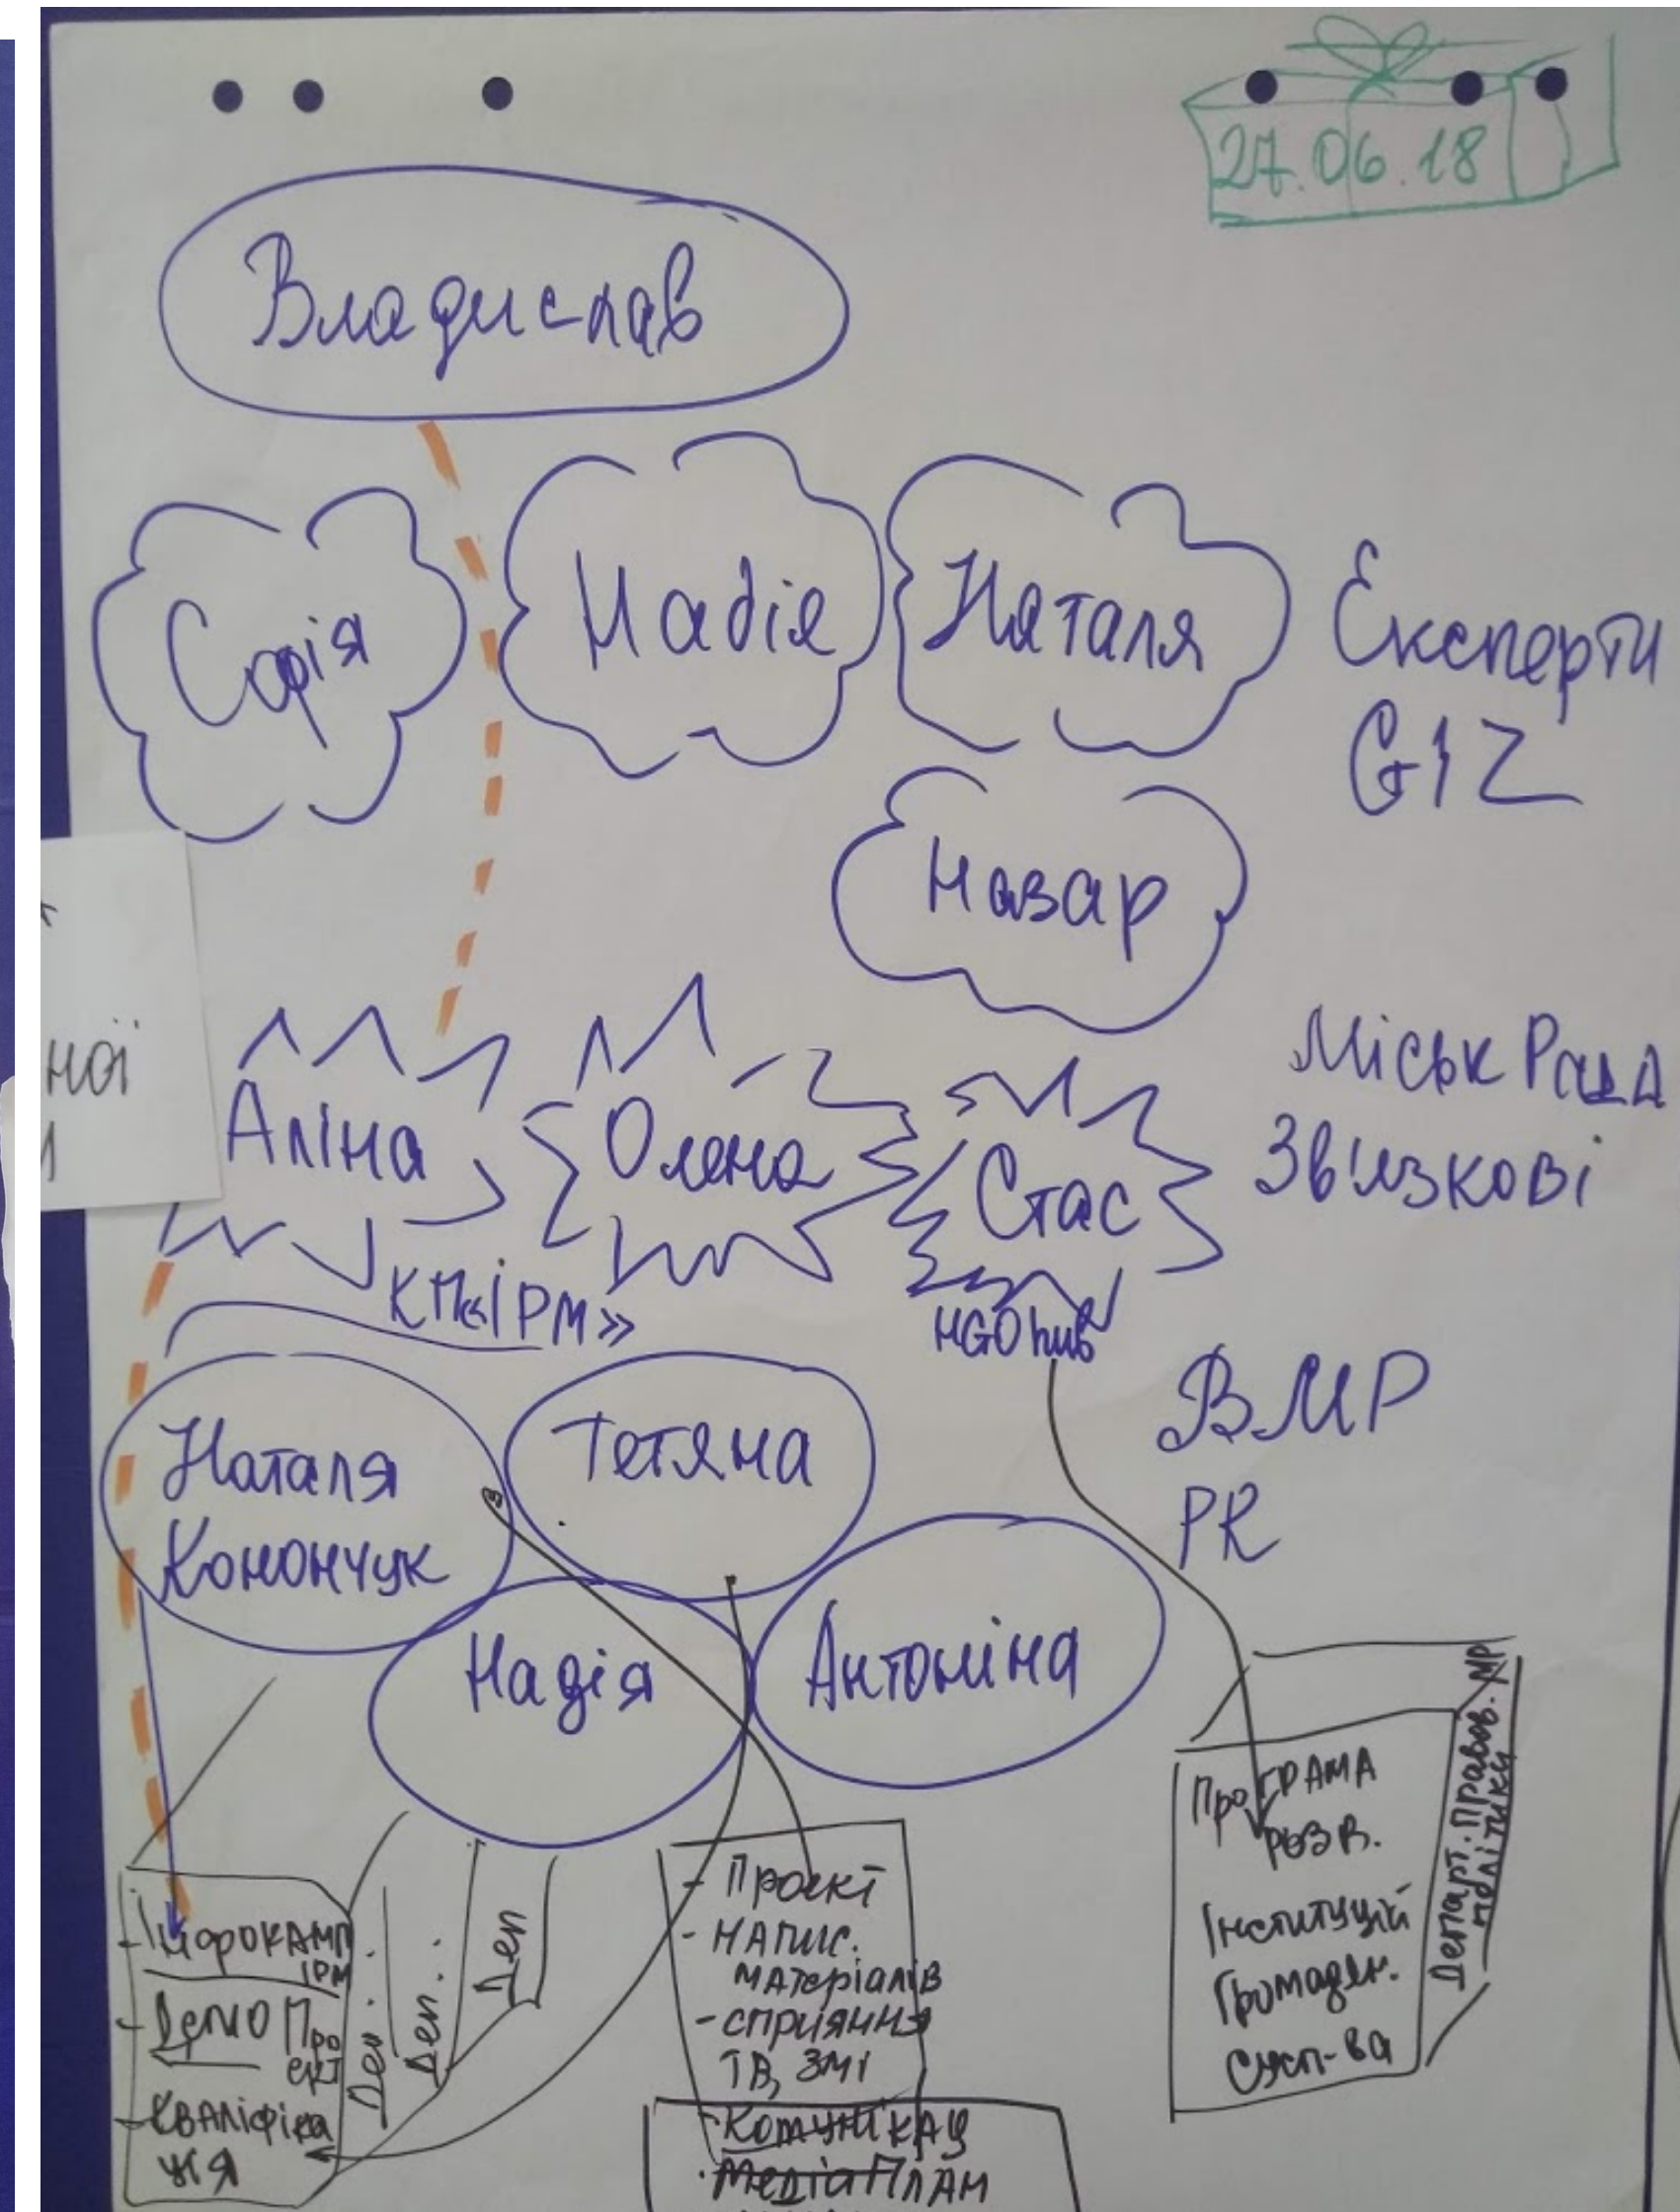 27.06.18
Владислав
Софія
Надія
Наталя
Експерти
GIZ
Назар
ної
Аліна
Олена
Стас
Міськ Рада
Зв'язкові
КП«ІРМ»
NGO hub
ВМР
PR
Наталя
Конончук
Тетяна
Надія
Антоніна
- Інфокамп
ІРМ
- Депю Про
ект
- Кваліфіка
ція
Деп..
Деп..
Деп
- Проєкт
- НАПИС.
матеріалів
- сприяння
ТВ, ЗМІ
- Комунікац
·МедіаПЛАН
Програма
розв.
Інституцій
Громадян.
Сусп-ва
Департ. Правов. МР
політики